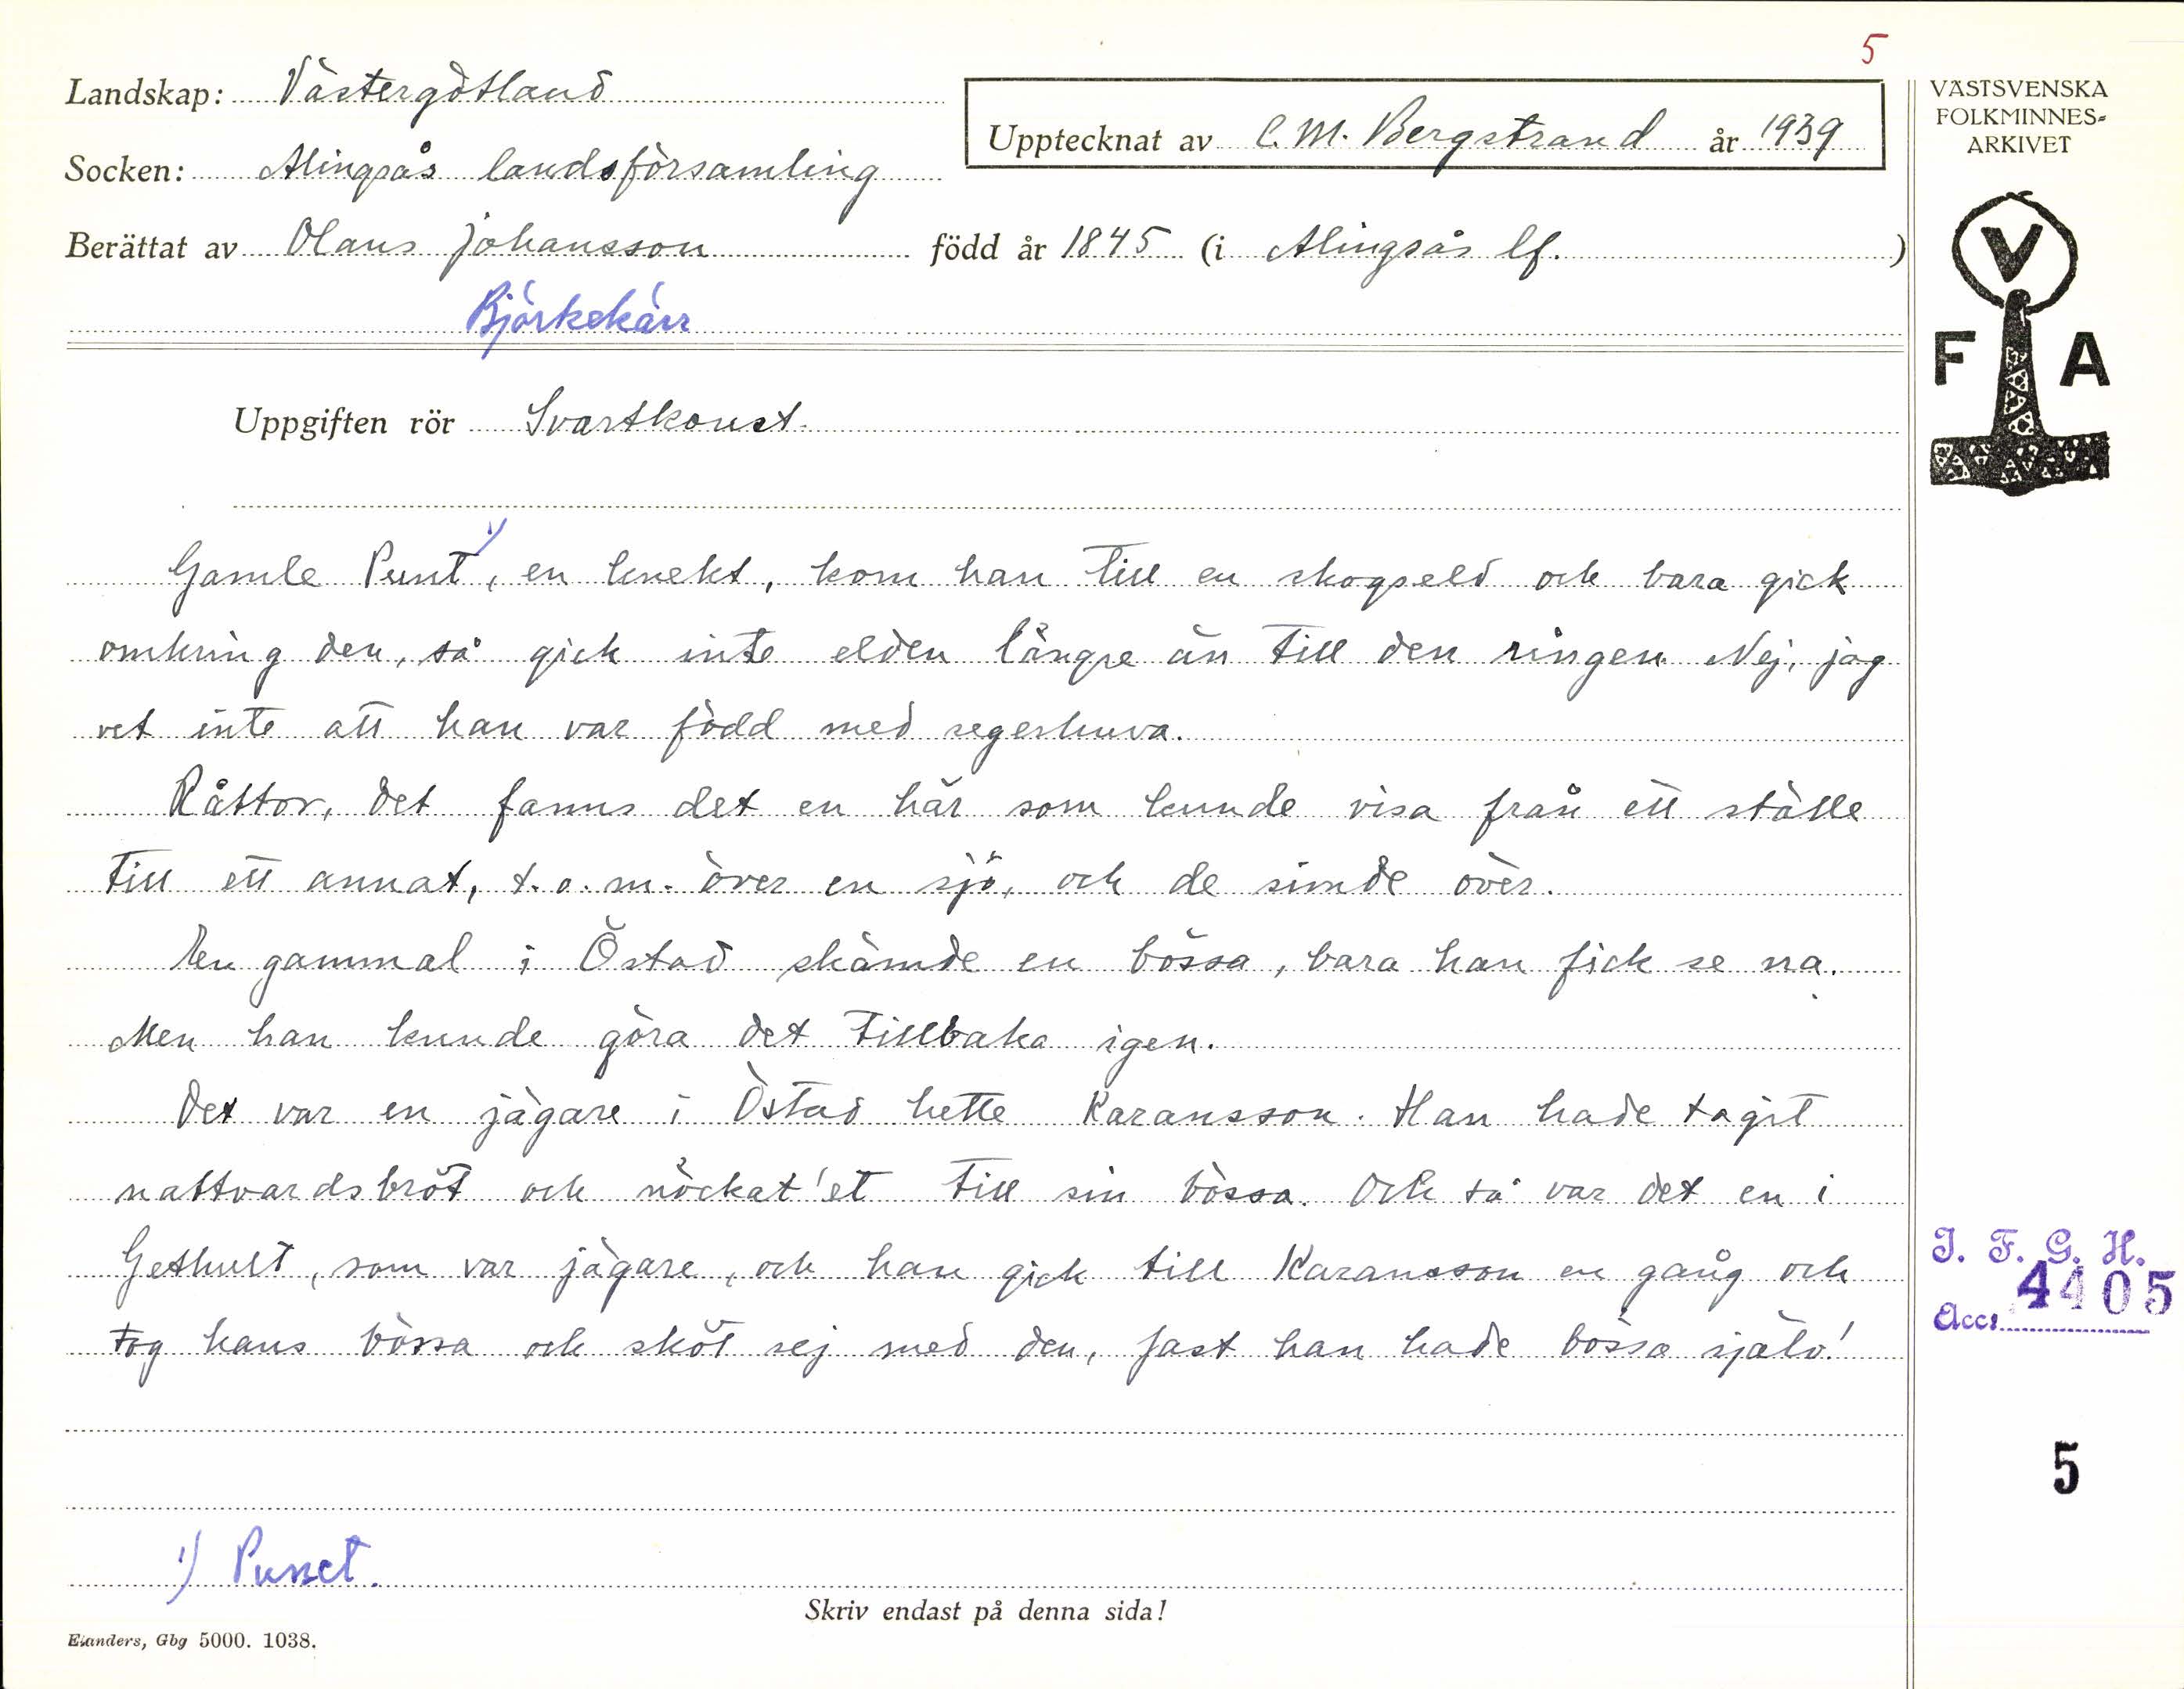 5
Landskap: Västergötland
Upptecknat av C. M. Bergstrand år 1939
Socken: Alingsås landsförsamling
Berättat av Olaus Johansson född år 1845 (i Alingsås lf.)
Björkekärr
Uppgiften rör Svartkonst.
Gamle Punt 1), en knekt, kom han till en skogseld och bara gick
omkring den, så gick inte elden längre än till den ringen. Nej, jag
vet inte att han var född med segerhuva.
Råttor, det fanns det en här som kunde visa från ett ställe
till ett annat, t.o.m. över en sjö, och de simde över.
En gammal i Östad skämde en bössa, bara han fick se na.
Men han kunde göra det tillbaka igen.
Det var en jägare i Östad hette Karansson. Han hade tagit
nattvardsbröt och nöckat'et till sin bössa. Och så var det en i
Gethult, som var jägare, och han gick till Karansson en gång och
tog hans bössa och sköt sej med den, fast han hade bössa själv!
1) Punct.
Skriv endast på denna sida!
Elanders, Gbg 5000. 1038.
VÄSTSVENSKA
FOLKMINNES-
ARKIVET
V
F A
I. F. G. H.
Acc. 4405
5